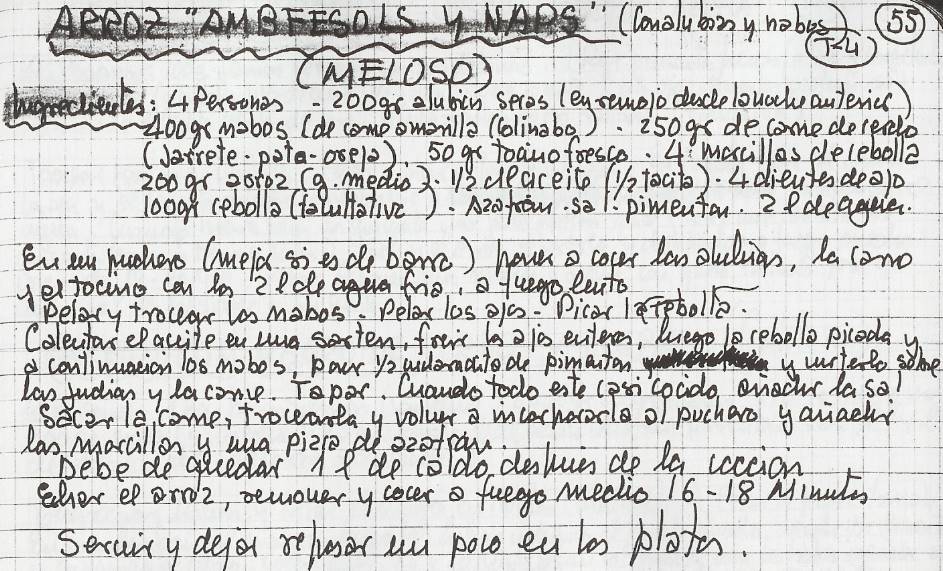 ARROZ "AMB FESOLS Y NAPS" (Con alubias y nabos) 55
T-4
(MELOSO)
Ingredientes: 4 Personas - 200gr alubias secas (en remojo desde la noche anterior)
400gr nabos (de carne amarilla (colinabo) - 250 gr de carne de cerdo
(Jarrete - pata - oreja). 50 gr tocino fresco - 4 morcillas de cebolla
200 gr arroz (g. medio). 1/2 dl aceite (1/2 tacita) - 4 dientes de ajo
100gr cebolla (facultativo) - Azafrán - sal - pimentón. 2 l de agua.
En un puchero (mejor si es de barro) poner a cocer las alubias, la carne
y el tocino con los 2 l de agua fria, a fuego lento
Pelar y trocear los nabos - Pelar los ajos - Picar la cebolla.
Calentar el aceite en una sarten, freir los ajos enteros, luego la cebolla picada y
a continuación los nabos, poner 1/2 cucharadita de pimentón y verterlo sobre
las judias y la carne. Tapar. Cuando todo este casi cocido, añadir la sal
Sacar la carne, trocearla y volver a incorporarla al puchero y añadir
las morcillas y una pizca de azafrán.
Debe de quedar 1 l de caldo, despues de la cocción
Echar el arroz, remover y cocer a fuego medio 16-18 Minutos
Servir y dejar reposar un poco en los platos.